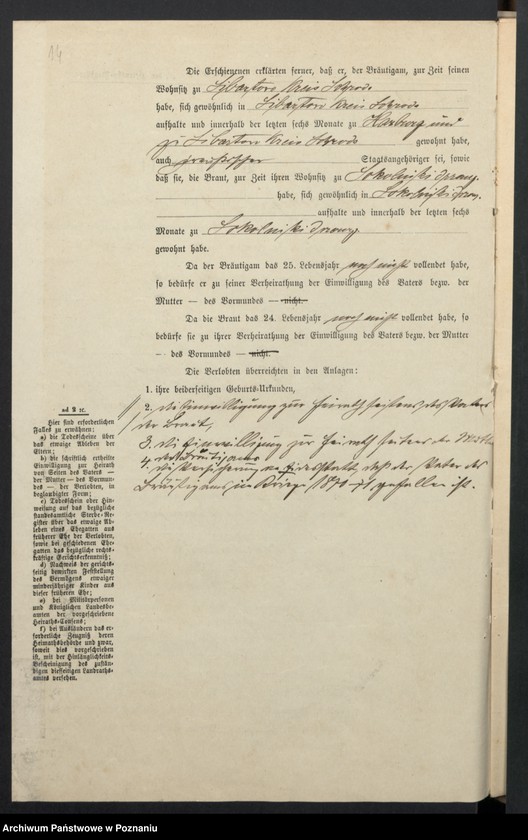 14
Die Erschienenen erklärten ferner, daß er, der Bräutigam, zur Zeit seinen
Wohnsitz zu Kreis
habe, sich gewöhnlich in Kreis
aufhalte und innerhalb der letzten sechs Monate zu Harburg und
zu Kreis gewohnt habe,
auch Staatsangehöriger sei, sowie
daß sie, die Braut, zur Zeit ihren Wohnsitz zu Sokolniki
habe, sich gewöhnlich in Sokolniki
aufhalte und innerhalb der letzten sechs
Monate zu Sokolniki
gewohnt habe.
Da der Bräutigam das 25. Lebensjahr noch nicht vollendet habe,
so bedürfe er zu seiner Verheirathung der Einwilligung des Vaters bezw. der
Mutter — des Vormundes — nicht.
Da die Braut das 24. Lebensjahr noch nicht vollendet habe, so
bedürfe sie zu ihrer Verheirathung der Einwilligung des Vaters bezw. der Mutter
— des Vormundes — nicht.
Die Verlobten überreichten in den Anlagen:
1. ihre beiderseitigen Geburts-Urkunden,
2. die Einwilligung zur Heirath seitens des Vaters
der Braut,
3. die Einwilligung zur Heirath seitens der Mutter
des Bräutigams
4. die Versicherung an Eidesstatt, daß der Vater des
Bräutigams im Kriege 1870/71 gefallen ist.
ad 2 ꝛc.
Hier sind erforderlichen
Falles zu erwähnen:
a) die Todesscheine über
das etwaige Ableben der
Eltern;
b) die schriftlich ertheilte
Einwilligung zur Heirath
von Seiten des Vaters —
der Mutter — des Vormun-
des — der Verlobten, in
beglaubigter Form;
c) Todesschein oder Hin-
weisung auf das bezügliche
standesamtliche Sterbe-Re-
gister über das etwaige Ab-
leben eines Ehegatten aus
früherer Ehe der Verlobten,
sowie bei geschiedenen Ehe-
gatten das bezügliche rechts-
kräftige Gerichtserkenntniß;
d) Nachweis der gerichts-
seitig bewirkten Feststellung
des Vermögens etwaiger
minderjähriger Kinder aus
dieser früheren Ehe;
e) bei Militärpersonen
und Königlichen Landesbe-
amten der vorgeschriebene
Heiraths-Consens;
f) bei Ausländern das er-
forderliche Zeugniß deren
Heimathsbehörde und zwar,
soweit dies vorgeschrieben
ist, mit der Hinlänglichkeits-
Bescheinigung des zustän-
digen diesseitigen Landraths-
amts versehen.
Archiwum Państwowe w Poznaniu